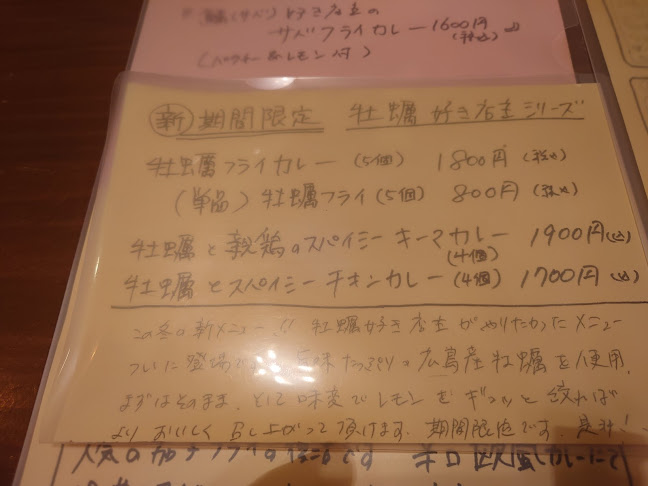 (サバ)好き店主の
サバフライカレー 1600円(税込)
レモン付)
新 期間限定 牡蠣好き店主シリーズ
牡蠣フライカレー(5個) 1800円(税込)
(単品)牡蠣フライ(5個) 800円(税込)
牡蠣と親鶏のスパイシーキーマカレー(4個) 1900円(込)
牡蠣とスパイシーチキンカレー(4個) 1700円(込)
この冬の新メニュー!! 牡蠣好き店主がやりたかったメニュー
ついに登場です。旨味たっぷりの広島産牡蠣を使用。
まずはそのまま、そして味変でレモンをギュッと絞れば
よりおいしく召し上がって頂けます。期間限定です。是非!
人気の